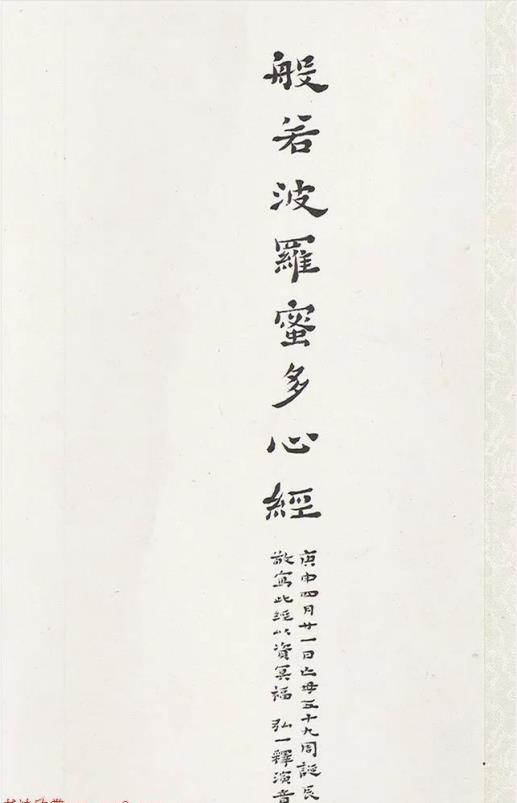 般若波羅蜜多心經
庚申四月廿一日亡母五十九周誕辰
敬寫此經以資冥福 弘一釋演音